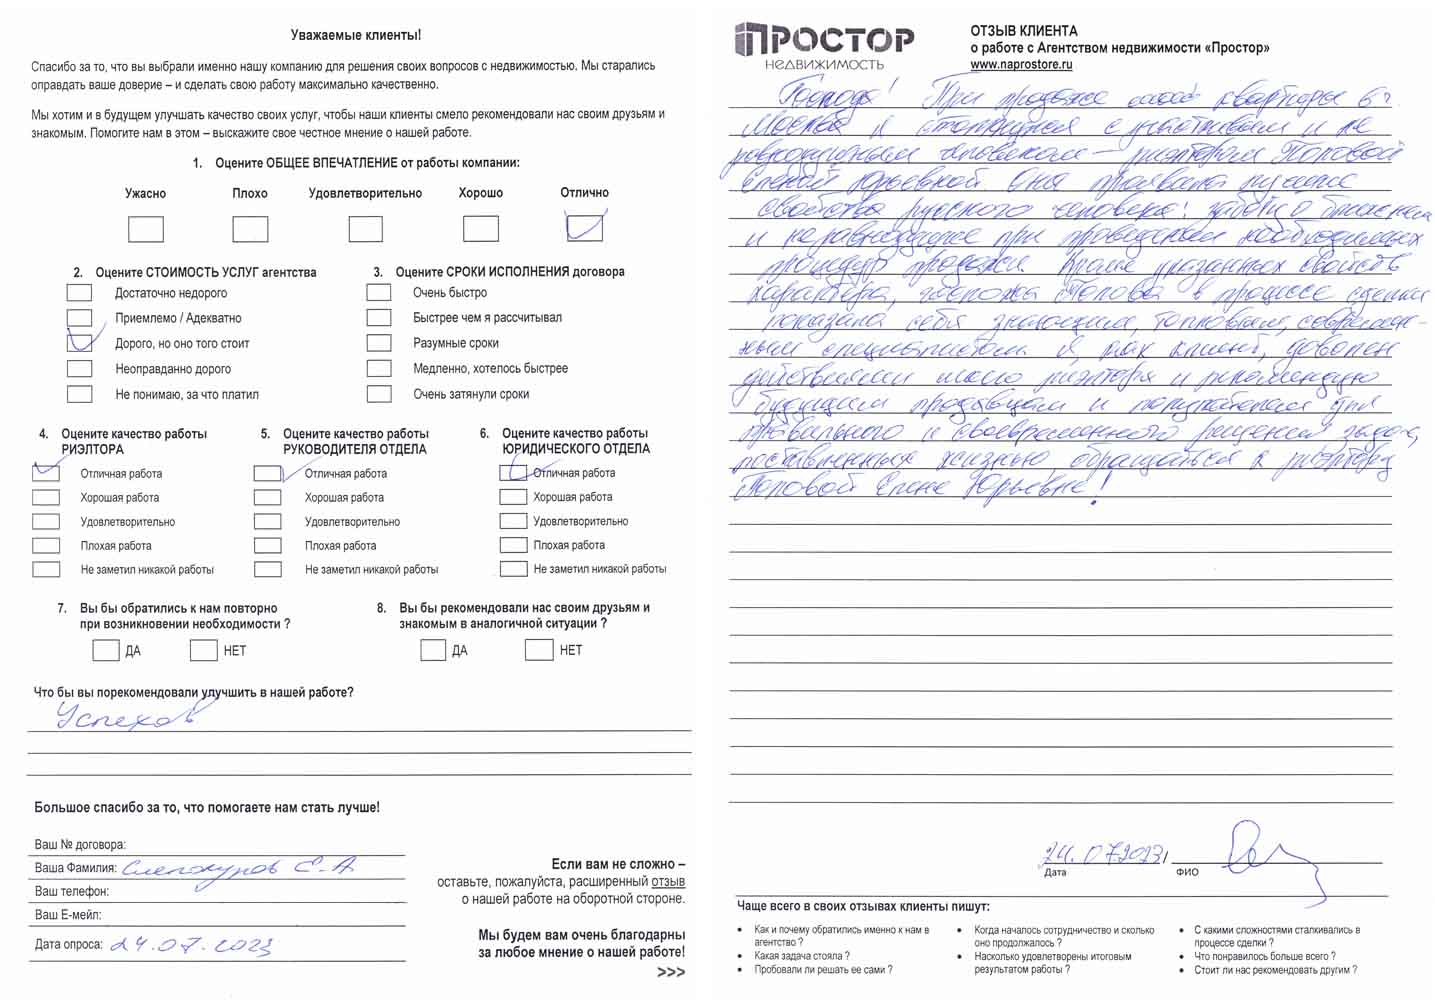 Уважаемые клиенты!
Спасибо за то, что вы выбрали именно нашу компанию для решения своих вопросов с недвижимостью. Мы старались
оправдать ваше доверие – и сделать свою работу максимально качественно.
Мы хотим и в будущем улучшать качество своих услуг, чтобы наши клиенты смело рекомендовали нас своим друзьям и
знакомым. Помогите нам в этом – выскажите свое честное мнение о нашей работе.
1. Оцените ОБЩЕЕ ВПЕЧАТЛЕНИЕ от работы компании:
Ужасно Плохо Удовлетворительно Хорошо Отлично
2. Оцените СТОИМОСТЬ УСЛУГ агентства
Достаточно недорого
Приемлемо / Адекватно
Дорого, но оно того стоит
Неоправданно дорого
Не понимаю, за что платил
3. Оцените СРОКИ ИСПОЛНЕНИЯ договора
Очень быстро
Быстрее чем я рассчитывал
Разумные сроки
Медленно, хотелось быстрее
Очень затянули сроки
4. Оцените качество работы
РИЭЛТОРА
Отличная работа
Хорошая работа
Удовлетворительно
Плохая работа
Не заметил никакой работы
5. Оцените качество работы
РУКОВОДИТЕЛЯ ОТДЕЛА
Отличная работа
Хорошая работа
Удовлетворительно
Плохая работа
Не заметил никакой работы
6. Оцените качество работы
ЮРИДИЧЕСКОГО ОТДЕЛА
Отличная работа
Хорошая работа
Удовлетворительно
Плохая работа
Не заметил никакой работы
7. Вы бы обратились к нам повторно
при возникновении необходимости ?
ДА НЕТ
8. Вы бы рекомендовали нас своим друзьям и
знакомым в аналогичной ситуации ?
ДА НЕТ
Что бы вы порекомендовали улучшить в нашей работе?
Успехов
Большое спасибо за то, что помогаете нам стать лучше!
Ваш № договора:
Ваша Фамилия: Слепокуров С.А.
Ваш телефон:
Ваш Е-мейл:
Дата опроса: 24.07.2023
Если вам не сложно –
оставьте, пожалуйста, расширенный отзыв
о нашей работе на оборотной стороне.
Мы будем вам очень благодарны
за любое мнение о нашей работе!
>>>
ПРОСТОР
НЕДВИЖИМОСТЬ
ОТЗЫВ КЛИЕНТА
о работе с Агентством недвижимости «Простор»
www.naprostore.ru
Господа! При продаже моей квартиры в г.
Москва я столкнулся с участливым и не
равнодушным человеком – риэлтором Поповой
Еленой Юрьевной. Она проявила лучшие
свойства русского человека: заботу о ближнем
и неравнодушие при проведении необходимых
процедур продажи. Кроме указанных свойств
характера, госпожа Попова в процессе сделки
показала себя знающим, толковым, современ-
ным специалистом. Я, как клиент, доволен
действиями моего риэлтора и рекомендую
будущим продавцам и покупателям для
правильного и своевременного решения задач,
поставленных жизнью обращаться к риэлтору
Поповой Елене Юрьевне!
24.07.2023/
Дата ФИО
Чаще всего в своих отзывах клиенты пишут:
• Как и почему обратились именно к нам в
агентство ?
• Какая задача стояла ?
• Пробовали ли решать ее сами ?
• Когда началось сотрудничество и сколько
оно продолжалось ?
• Насколько удовлетворены итоговым
результатом работы ?
• С какими сложностями сталкивались в
процессе сделки ?
• Что понравилось больше всего ?
• Стоит ли нас рекомендовать другим ?